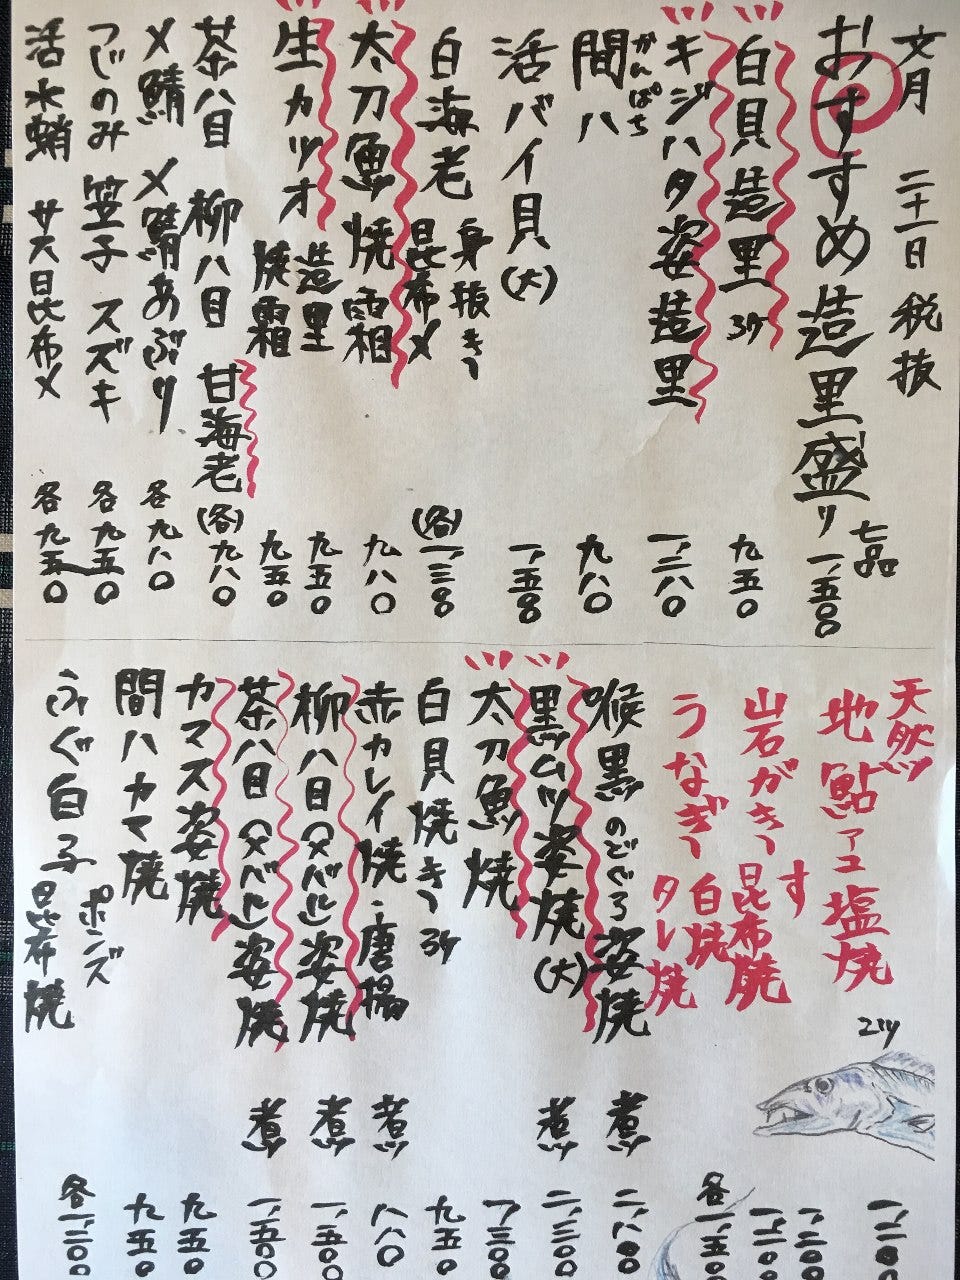 文月 二十一日 税抜
おすすめ造里盛り 七品 一、五〇〇
白貝造里 3ケ 九五〇
キジハタ姿造里 一、二八〇
間八 かんぱち 九八〇
活バイ貝(大) 一、五〇〇
白海老 身抜き 昆布〆 (各)一、三〇〇
太刀魚焼霜 九八〇
生カツオ 造里 九五〇
焼霜 九五〇
茶八目 柳八目 甘海老 (各)九八〇
〆鯖 〆鯖あぶり 各九八〇
つじのみ 笠子 スズキ 各九五〇
活水蛸 サス昆布〆 各九五〇
天然 地鮎アユ塩焼 2ツ
岩がき す 昆布焼
うなぎ 白焼 タレ焼 各一、五〇〇
喉黒 のどぐろ 姿焼 煮 二、八〇〇
黒ムツ姿焼(大) 煮 二、三〇〇
太刀魚焼 一、三〇〇
白貝焼き 3ケ 九五〇
赤カレイ焼・唐揚 煮 八八〇
柳八目(メバル)姿焼 煮 一、五〇〇
茶八目(メバル)姿焼 煮 一、五〇〇
カマス姿焼 九五〇
間八カマ焼 九五〇
ふぐ白子 ポンズ 昆布焼 各一、二〇〇